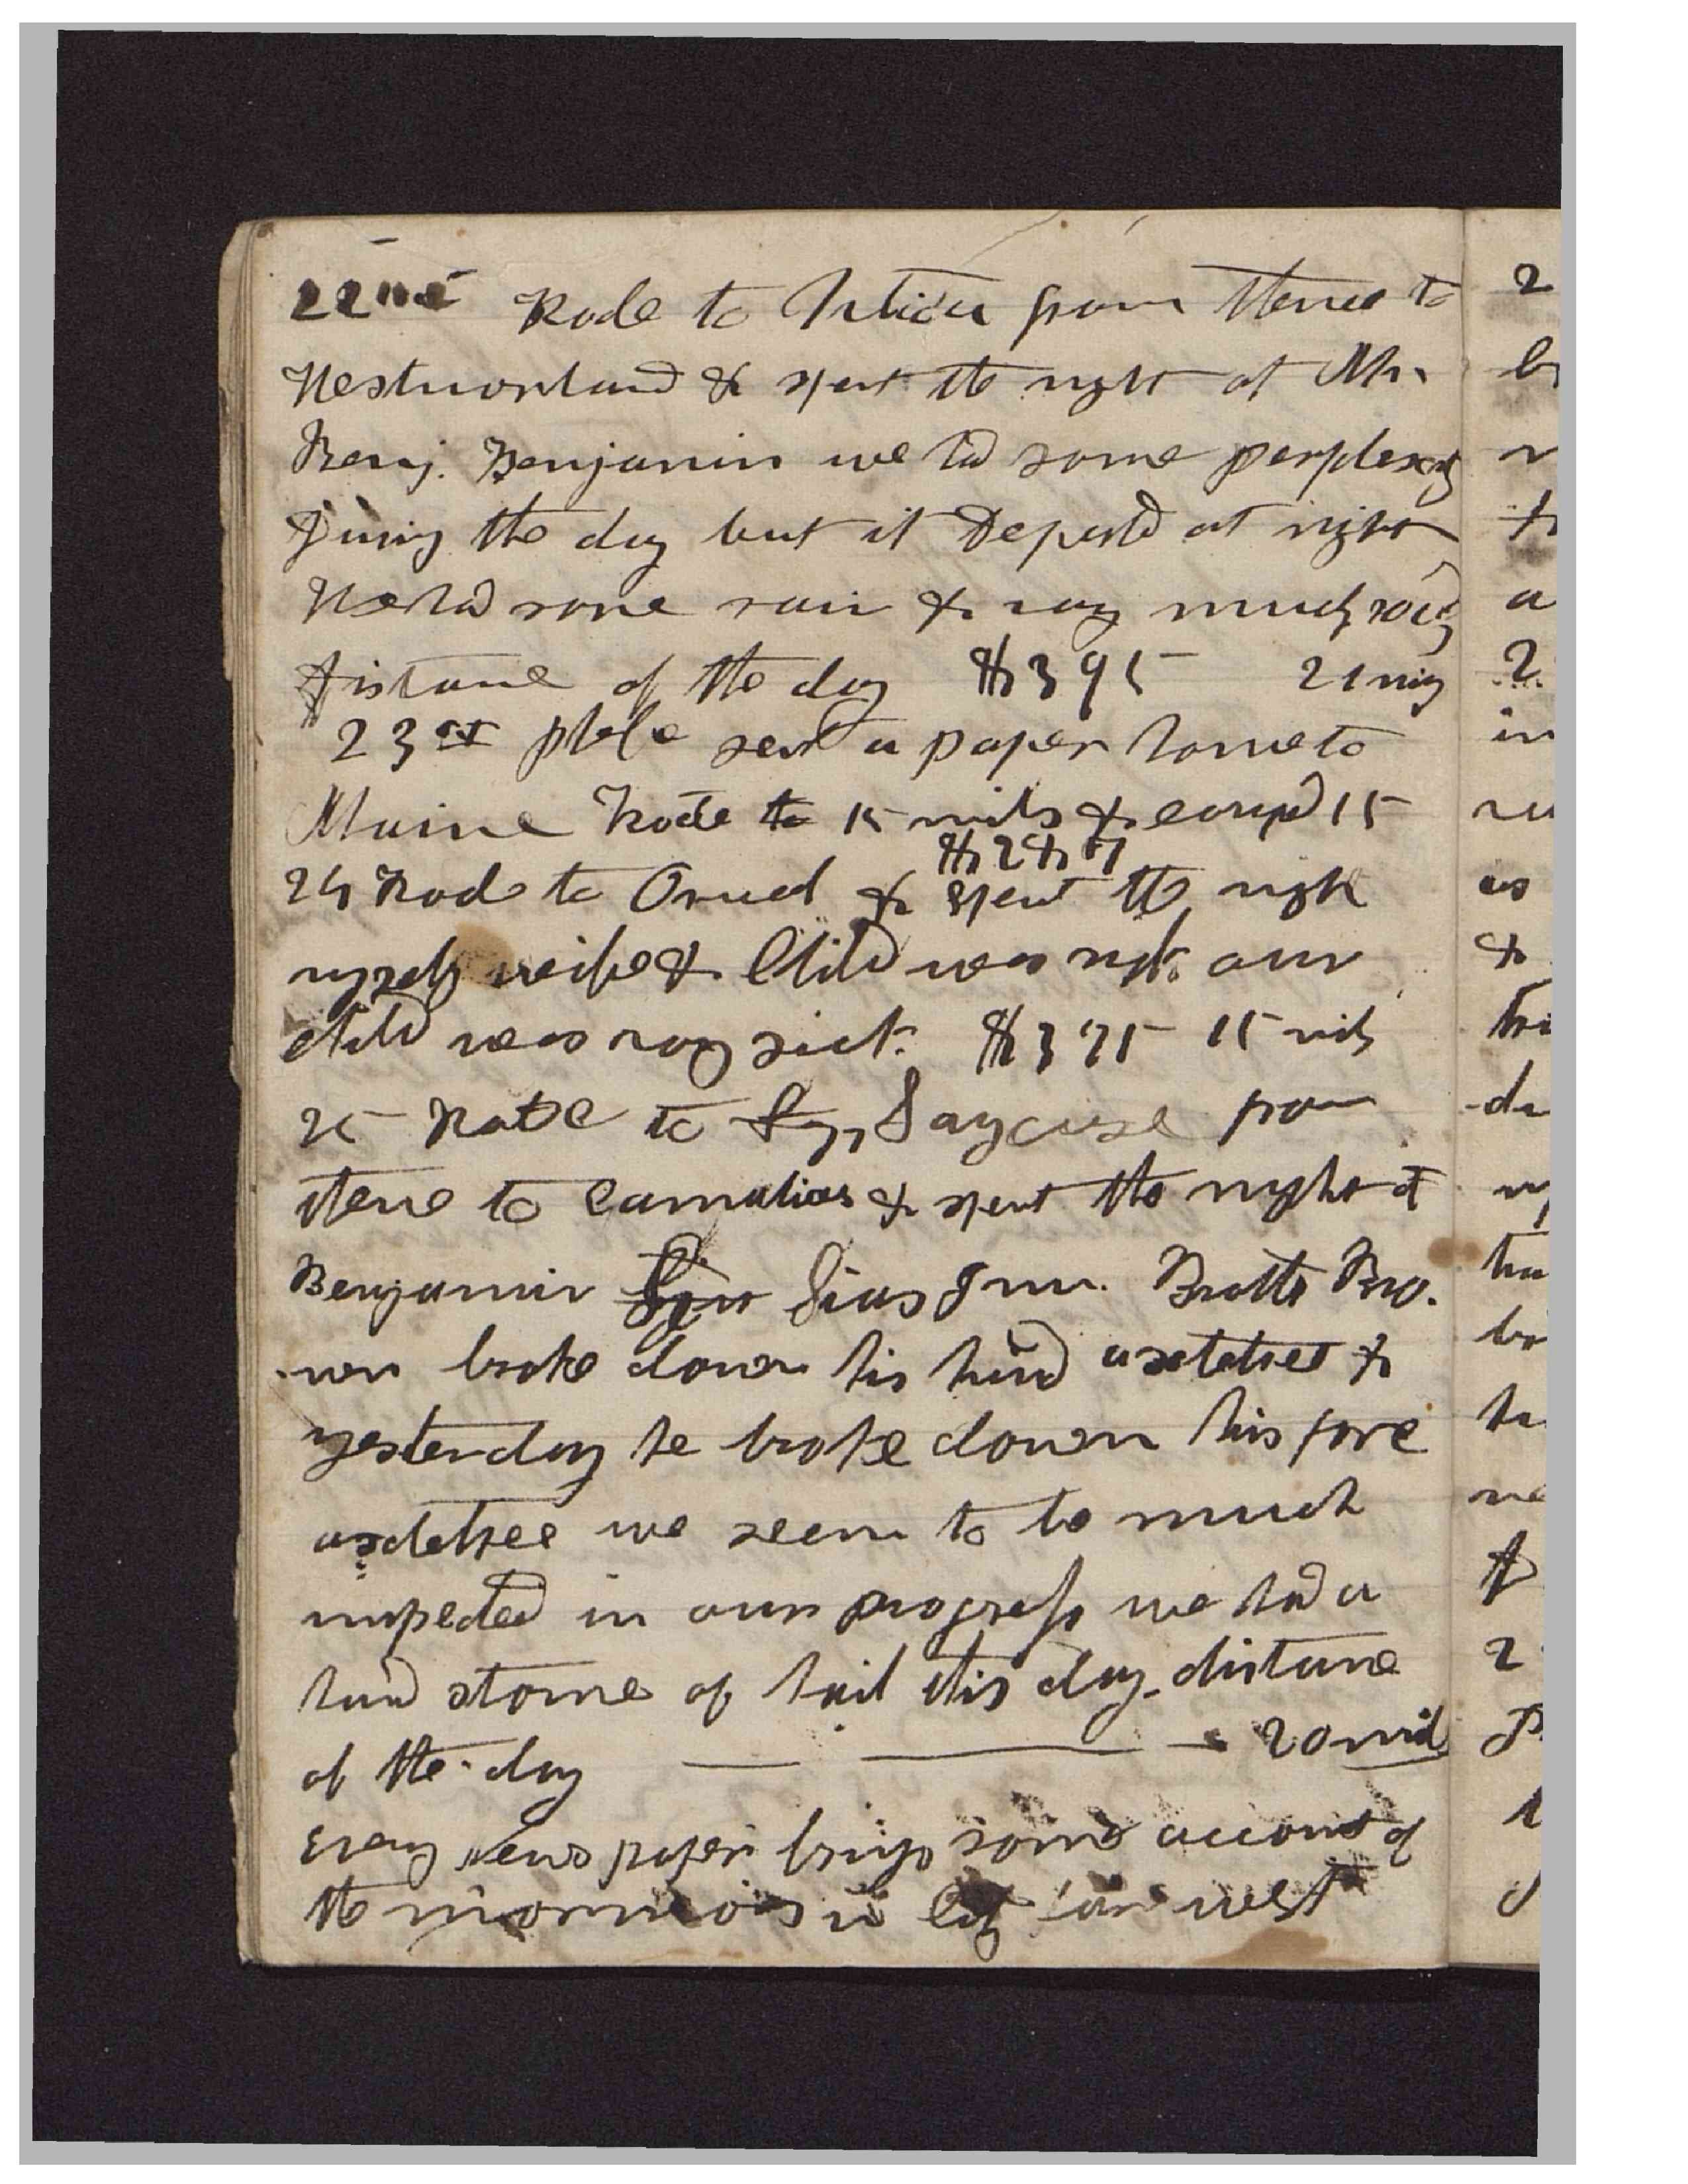 22nd Rode to Utica from thence to
Westmorland & spent the night at Mr.
Benj. Benjamin we had some perplexity
During the day but it Departd at night
We had some rain & vary much
distance of the day $395 21 mig
23rd Phebe sent a paper home to
Maine Rode to 15 mils & campd 15
24 Rode to & spent the night
myself wife & Child was our
child was vary sick. $375 15 mils
25 Rode to Sayrcuse from
thence to Camalias & spent the night at
Benjamin Sias Jnr. Brothr Bro.
wn broke down his hind axeletree &
yesterday he broke down his fore
axeletree we seem to be much
impeded in our progress we had a
hard storme of hail this day. distance
of the day — — 20 mil
Evary News paper brings some account of
the mormons in far west
2
in
as
&
2